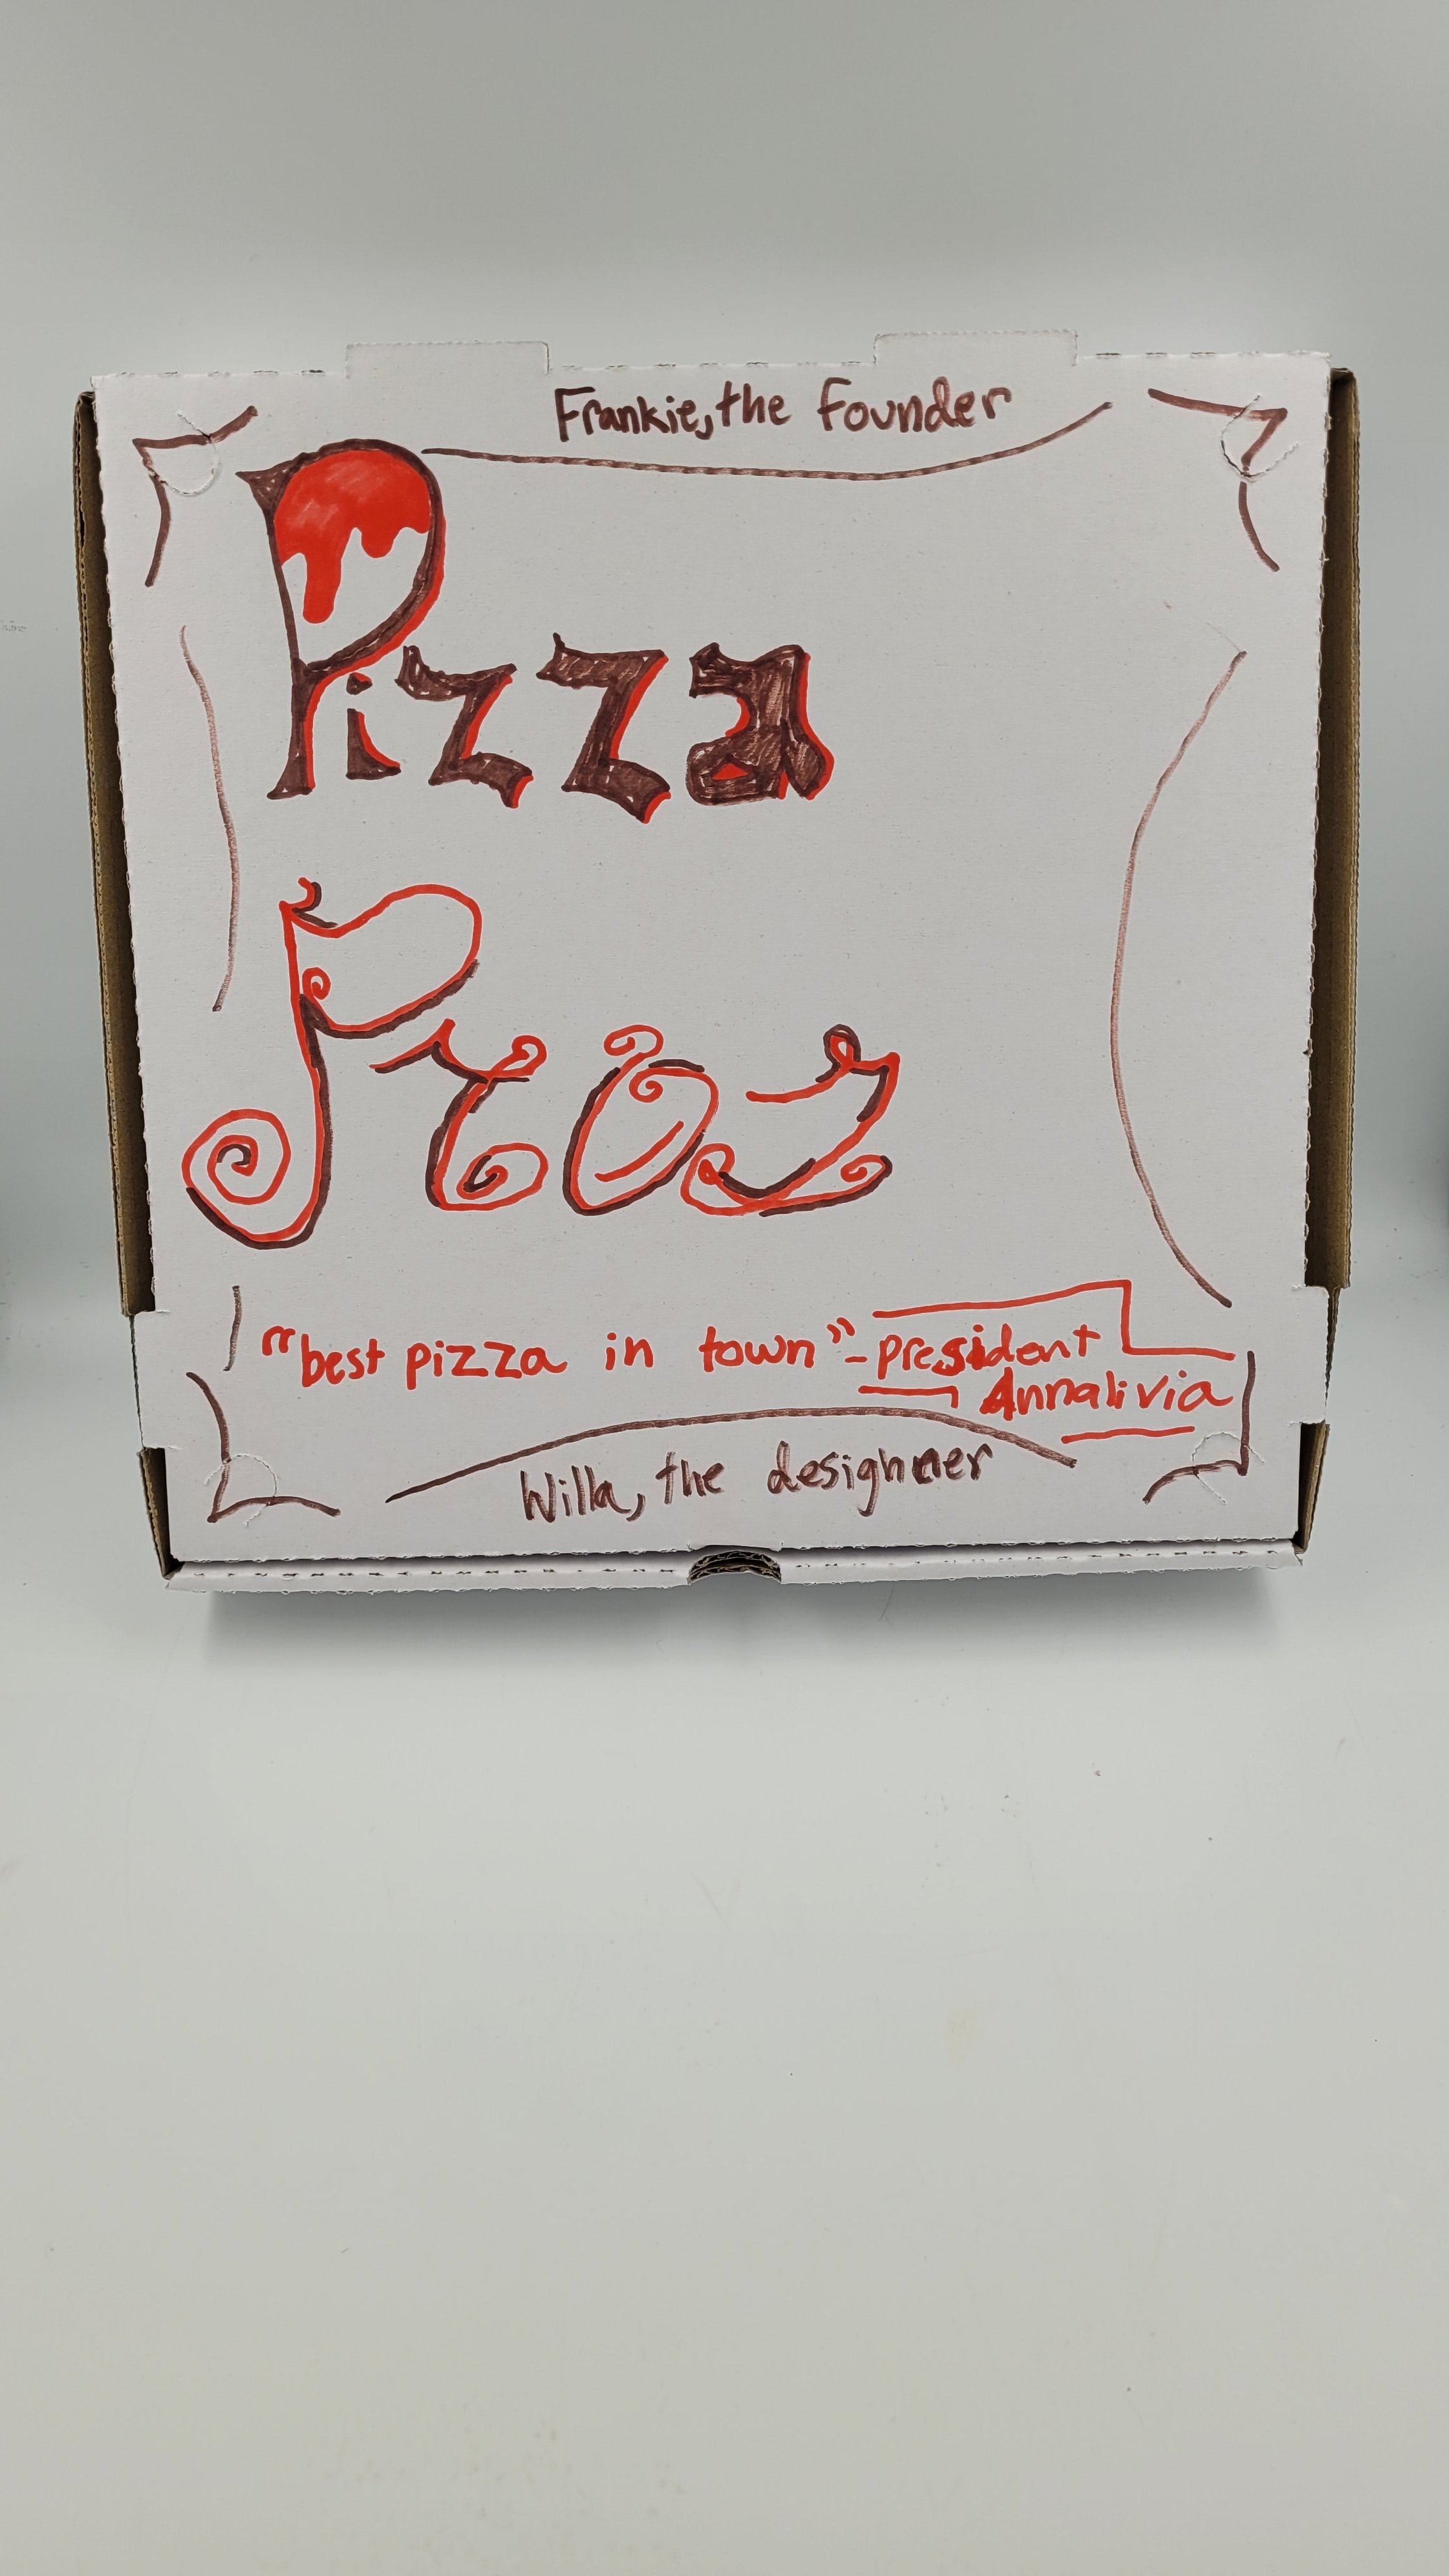 Frankie, the Founder
Pizza
Pros
"best pizza in town" - president
Annalivia
Willa, the desighner